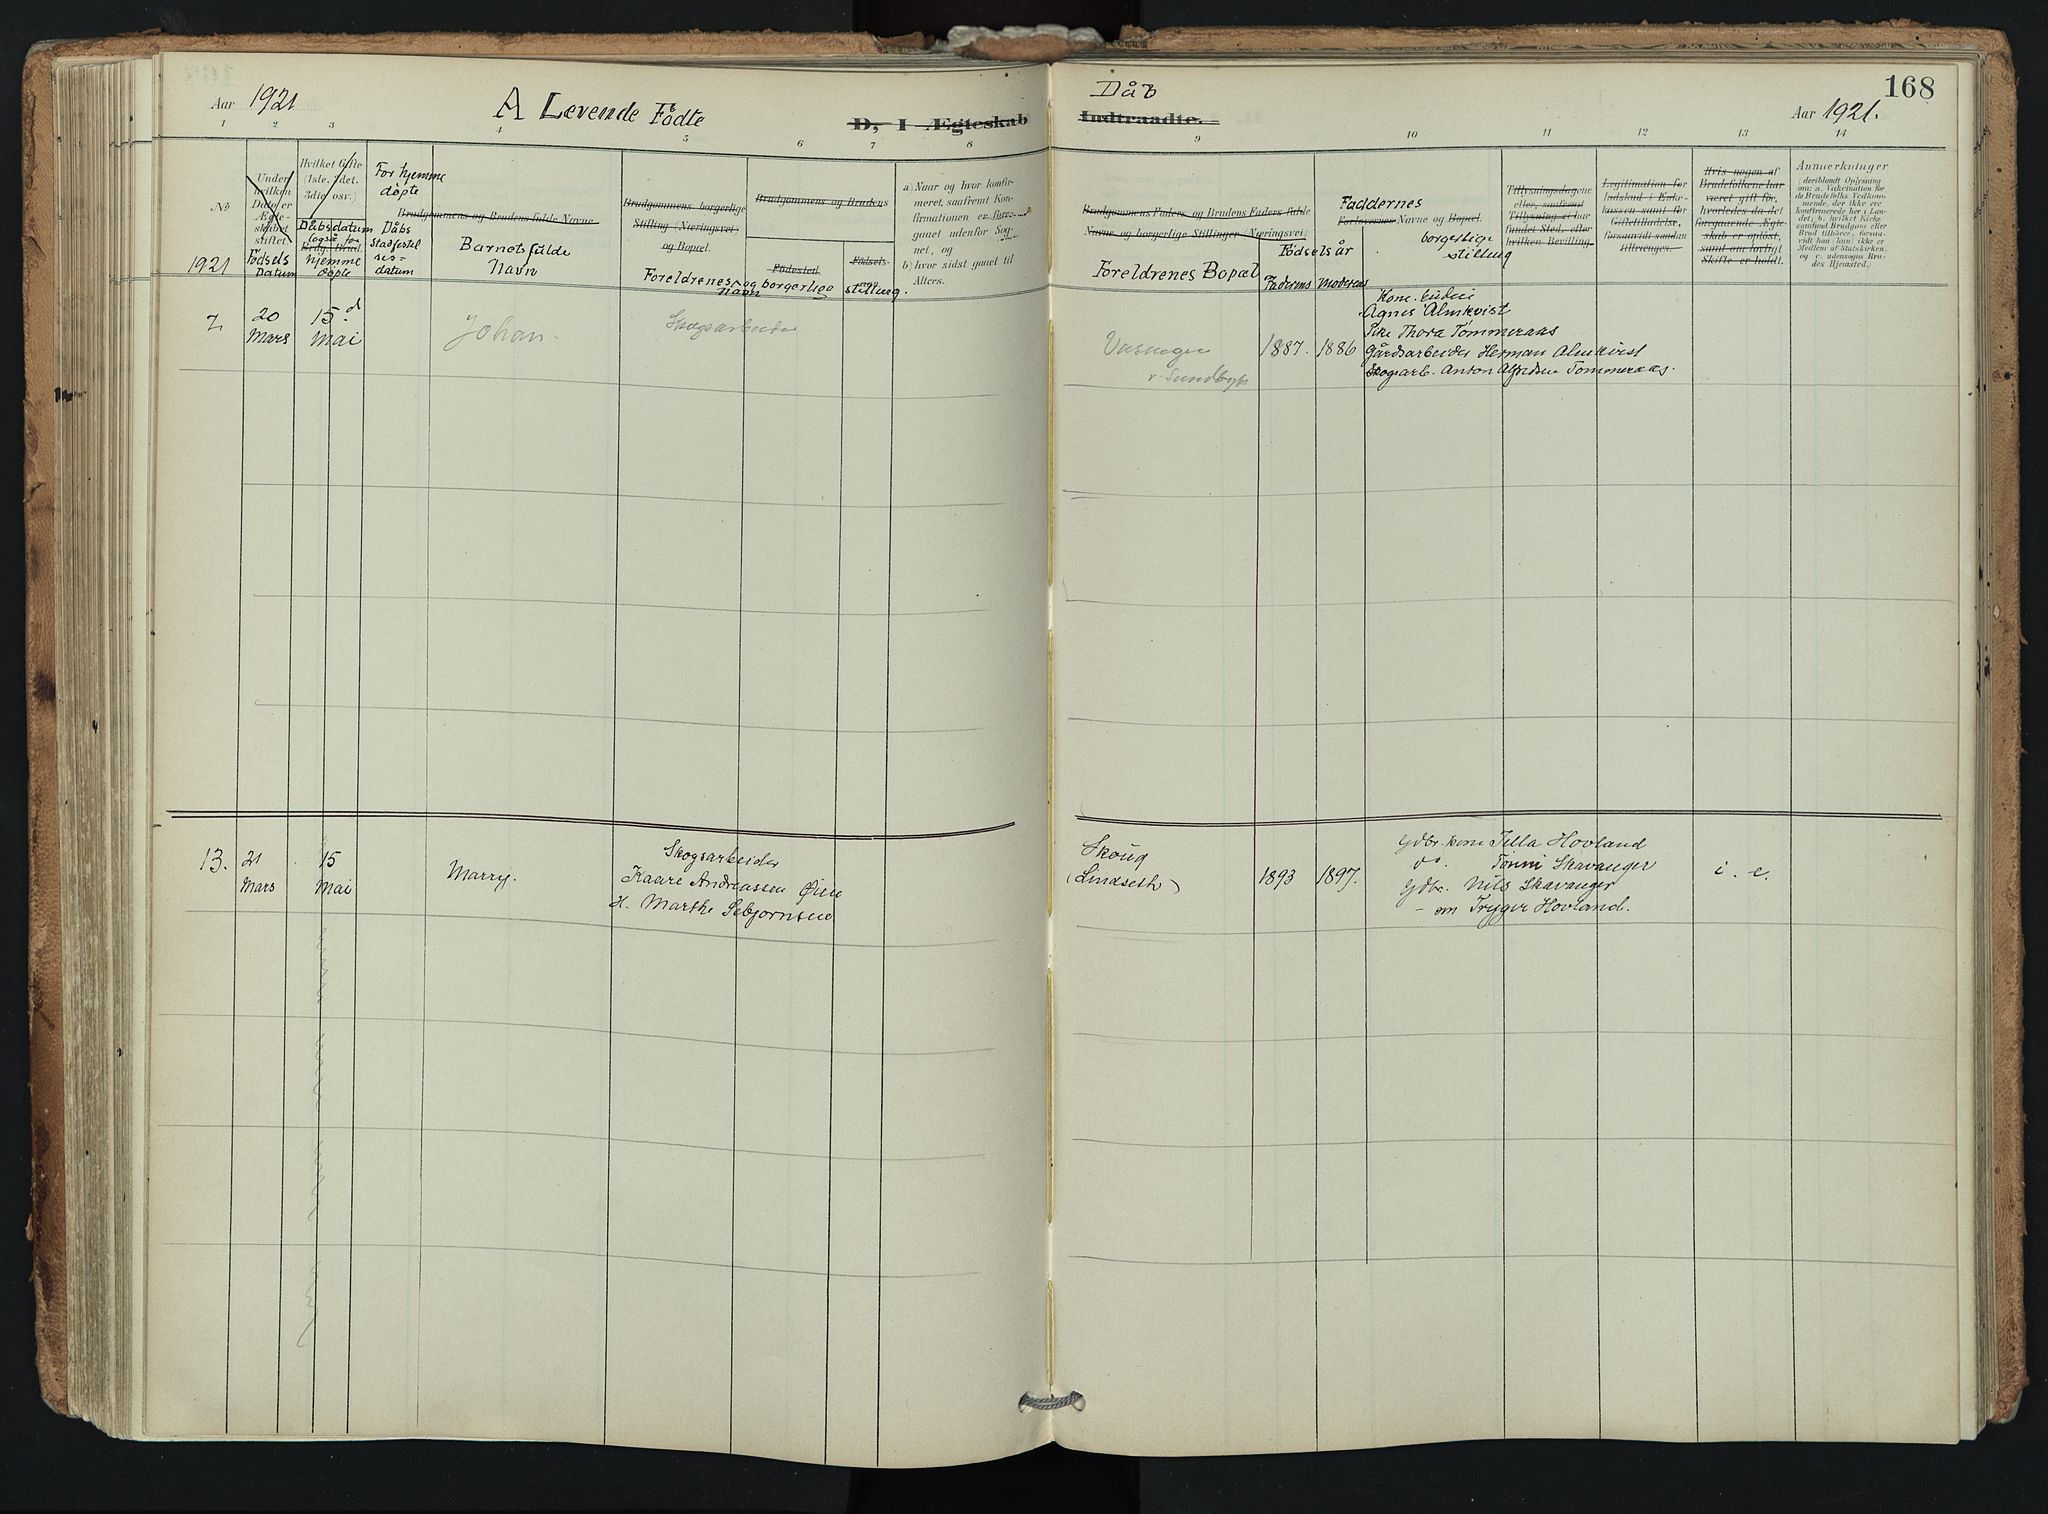 Aar 1921
A Levende Födte
D, I Ægteskab
1 2 3 4 5 6 7 8
№
1921
Under hvilken Dato er Ægteskabet stiftet.
Födsels Datum
Hvilket Gifte (1ste, 2det, 3die osv.)
Dåbsdatum
også for hjemme døpte
For hjemme døpte
Dåbs stadfestelses-datum
Brudgommens og Brudens fulde Navne
Barnets fulde Navn
Brudgommens borgerlige Stilling (Næringsvei) og Bopæl.
Foreldrenes Navn og borgerlige stilling.
Brudgommens og Brudens
Fødested
Fødsels
a) Naar og hvor konfirmeret, saafremt Konfirmationen er foregaaet udenfor Sognet, og
b) hvor sidst gaaet til Alters.
7. 20 Mars 15.d Mai Johan. Skogsarbeider
13. 21 Mars 15 Mai Marry. Skogsarbeider
Kaare Andreassen Øien
H. Marthe Sebjørnsen
Dåb
168
Indtraadte.
Aar 1921.
9 10 11 12 13 14
Brudgommens Faders og Brudens Faders fulde Navne og borgerlige Stillinger (Næringsvei)
Foreldrenes Bopæl
Födselsår
Faderens Moderens
Faddernes
Forlovernes Navne og Bopæl.
borgerlige stilling
Tillysningsdagene eller, saafremt Tillysning ei har fundet Sted, efter hvilken Bevilling.
Legitimation for Indskud i Enkekassen samt for Giftetilladelse, forsaavidt saadan tiltrænges.
Hvis nogen af Brudefolkene har været gift før, hvorledes da det foregaaende Ægteskab er opløst, samt om lovligt Skifte er holdt.
Anmærkninger
(deriblandt Oplysning om: a. Vakcination for de Brudefolks Vedkommende, der ikke ere konfirmerede her i Landet; b. hvilket Kirkesamfund Brudgom eller Brud tilhører, forsaavidt han (hun) ikke er Medlem af Statskirken, og c. udensogns Brudes Hjemsted.
1887. 1886
Agnes Almkvist
Pike Thora Tømmeraas
Gårdsarbeider Herman Almkvist
Skogsarb. Anton Alfredsen Tømmeraas.
Skoug
(Lindseth)
1893 1897.
Gdbr. kone Tilla Hovland
do. Tonni Skavanger
Gdbr. Nils Skavanger
Trygve Hovland.
i. e.